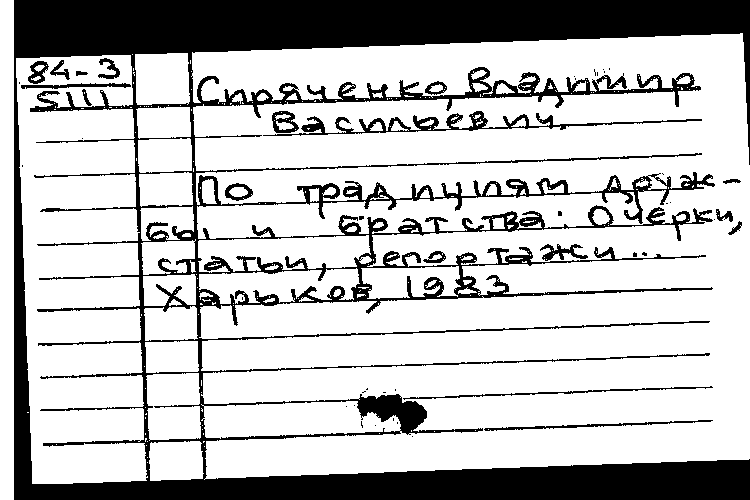 84-3
5111
Сиряченко, Владимир
Васильевич.
По традициям друж-
бы и братства: Очерки,
статьи, репортажи...
Харьков, 1983